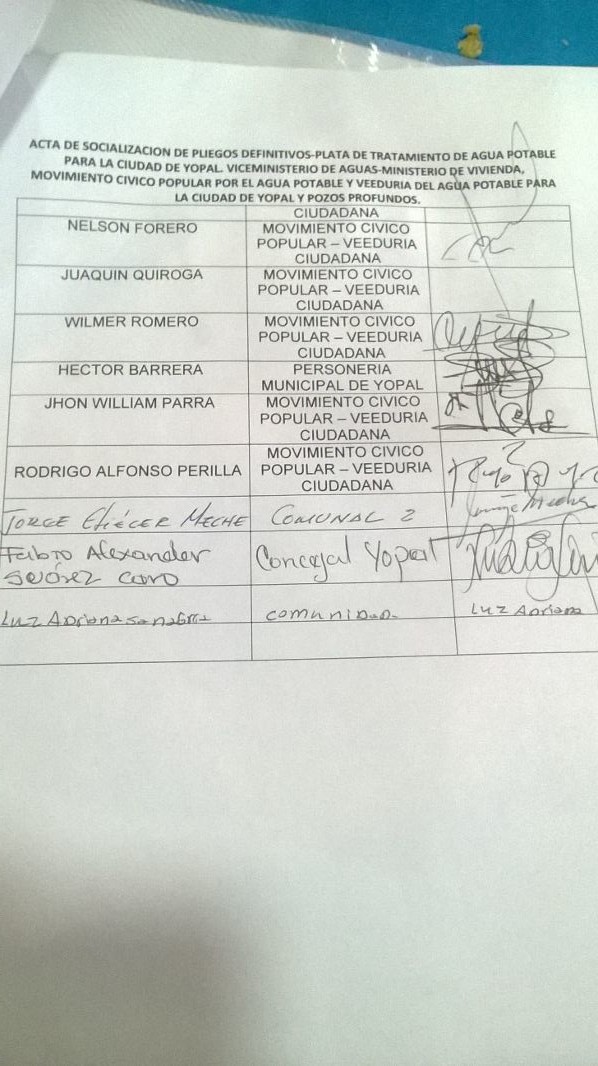 ACTA DE SOCIALIZACION DE PLIEGOS DEFINITIVOS-PLATA DE TRATAMIENTO DE AGUA POTABLE
PARA LA CIUDAD DE YOPAL. VICEMINISTERIO DE AGUAS-MINISTERIO DE VIVIENDA,
MOVIMIENTO CIVICO POPULAR POR EL AGUA POTABLE Y VEEDURIA DEL AGUA POTABLE PARA
LA CIUDAD DE YOPAL Y POZOS PROFUNDOS.
CIUDADANA
NELSON FORERO
MOVIMIENTO CIVICO
POPULAR – VEEDURIA
CIUDADANA
JUAQUIN QUIROGA
MOVIMIENTO CIVICO
POPULAR – VEEDURIA
CIUDADANA
WILMER ROMERO
MOVIMIENTO CIVICO
POPULAR – VEEDURIA
CIUDADANA
HECTOR BARRERA
PERSONERIA
MUNICIPAL DE YOPAL
JHON WILLIAM PARRA
MOVIMIENTO CIVICO
POPULAR – VEEDURIA
CIUDADANA
RODRIGO ALFONSO PERILLA
MOVIMIENTO CIVICO
POPULAR – VEEDURIA
CIUDADANA
JORGE ELIÉCER MECHE COMUNAL 2 Jorge Meche
Fabio Alexander
Suárez Caro
Concejal Yopal
Luz Adriana Sanabria comunidad. Luz Adriana